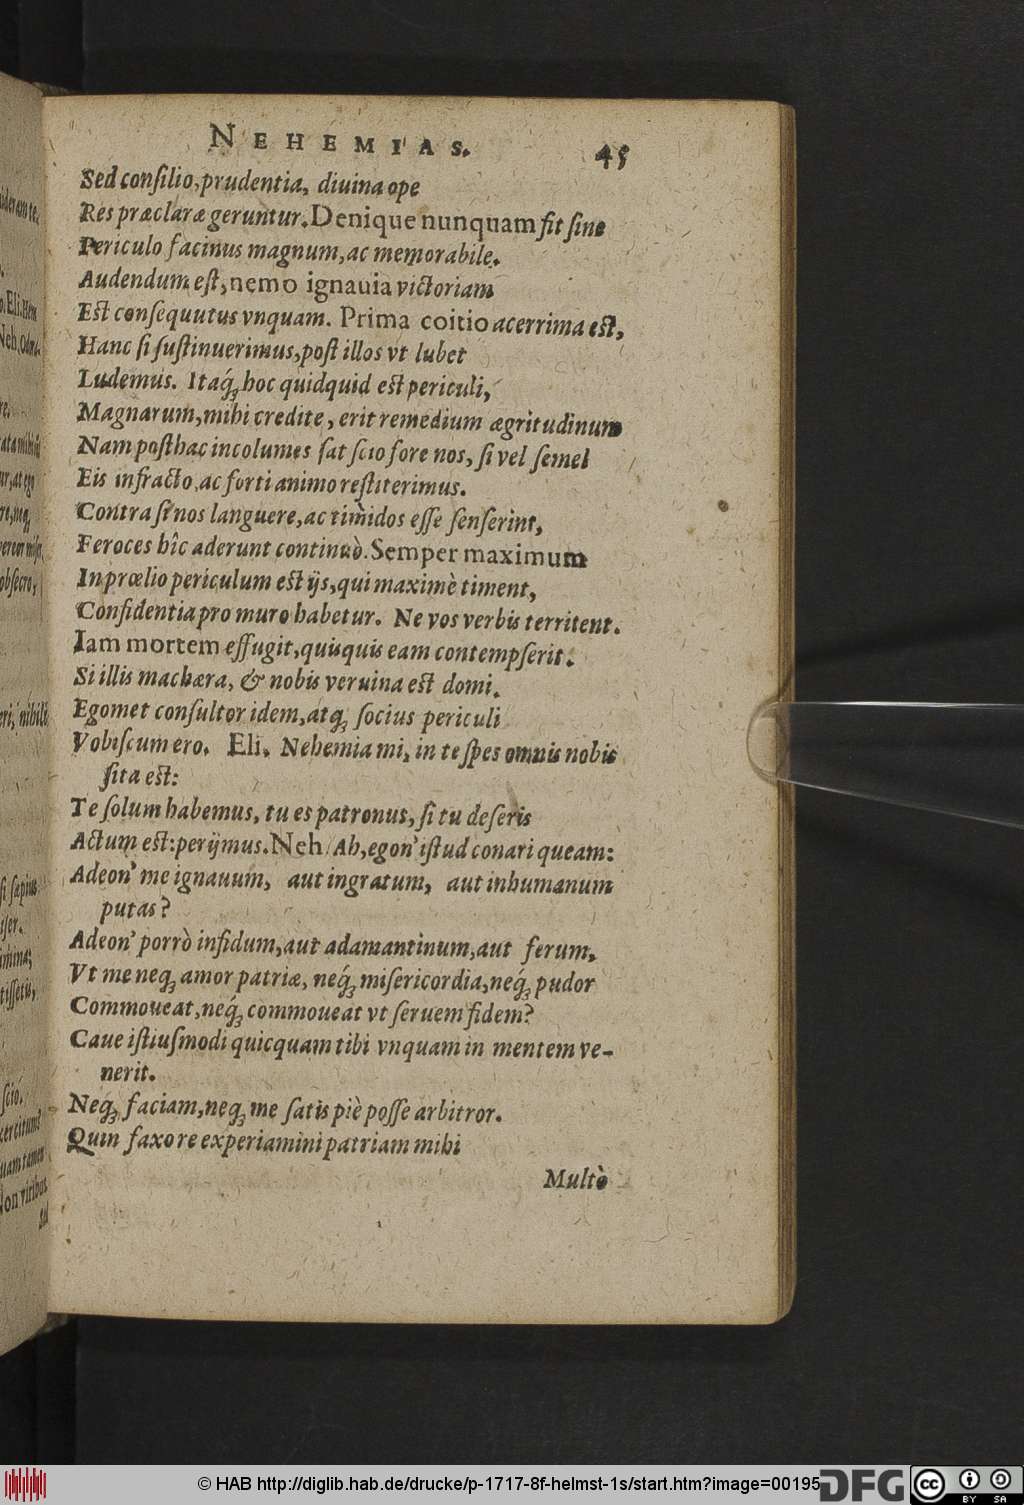 NEHEMIAS. 45
Sed consilio, prudentia, diuina ope
Res præclaræ geruntur. Denique nunquam fit sine
Periculo facinus magnum, ac memorabile.
Audendum est, nemo ignauia victoriam
Est consequutus vnquam. Prima coitio acerrima est,
Hanc si sustinuerimus, post illos vt lubet
Ludemus. Itaq́ꝫ hoc quidquid est periculi,
Magnarum, mihi credite, erit remedium ægritudinum
Nam posthac incolumes sat scio fore nos, si vel semel
Eis infracto, ac forti animo restiterimus.
Contra si nos languere, ac timidos esse senserint,
Feroces hîc aderunt continuò. Semper maximum
In prœlio periculum est ijs, qui maximè timent,
Confidentia pro muro habetur. Ne vos verbis territent.
Iam mortem effugit, quisquis eam contempserit.
Si illis machæra, & nobis veruina est domi.
Egomet consultor idem, atqꝫ socius periculi
Vobiscum ero. Eli. Nehemia mi, in te spes omnis nobis
sita est:
Te solum habemus, tu es patronus, si tu deseris
Actum est: perijmus. Neh. Ah, egon' istud conari queam:
Adeon' me ignauum, aut ingratum, aut inhumanum
putas?
Adeon' porrò infidum, aut adamantinum, aut ferum,
Vt me neqꝫ amor patriæ, neq́ꝫ misericordia, neq́ꝫ pudor
Commoueat, neq́ꝫ commoueat vt seruem fidem?
Caue istiusmodi quicquam tibi vnquam in mentem ve-
nerit.
Neqꝫ faciam, neqꝫ me satis piè posse arbitror.
Quin faxo re experiamini patriam mihi
Multò
© HAB http://diglib.hab.de/drucke/p-1717-8f-helmst-1s/start.htm?image=00195
DFG
cc BY SA